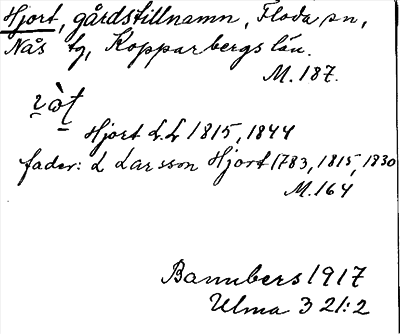 Hjort, gårdstillnamn, Floda sn,
Nås tg, Kopparbergs län.
M. 187.
Hjort L.L 1815, 1844
fader: L Larsson Hjort 1783, 1815, 1830
M. 164
1917
Ulma 3 21:2